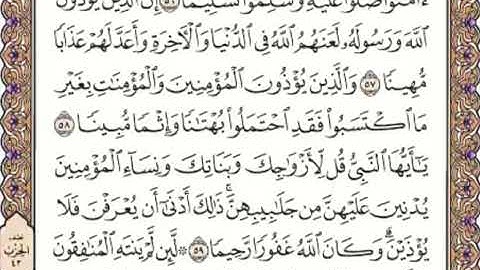 ءَامَنُوا۟ صَلُّوا۟ عَلَيْهِ وَسَلِّمُوا۟ تَسْلِيمًا ٥٦ إِنَّ ٱلَّذِينَ يُؤْذُونَ
ٱللَّهَ وَرَسُولَهُۥ لَعَنَهُمُ ٱللَّهُ فِى ٱلدُّنْيَا وَٱلْءَاخِرَةِ وَأَعَدَّ لَهُمْ عَذَابًا
مُّهِينًا ٥٧ وَٱلَّذِينَ يُؤْذُونَ ٱلْمُؤْمِنِينَ وَٱلْمُؤْمِنَـٰتِ بِغَيْرِ
مَا ٱكْتَسَبُوا۟ فَقَدِ ٱحْتَمَلُوا۟ بُهْتَـٰنًا وَإِثْمًا مُّبِينًا ٥٨
يَـٰٓأَيُّهَا ٱلنَّبِىُّ قُل لِّأَزْوَٰجِكَ وَبَنَاتِكَ وَنِسَآءِ ٱلْمُؤْمِنِينَ
يُدْنِينَ عَلَيْهِنَّ مِن جَلَـٰبِيبِهِنَّ ۚ ذَٰلِكَ أَدْنَىٰٓ أَن يُعْرَفْنَ فَلَا
يُؤْذَيْنَ ۗ وَكَانَ ٱللَّهُ غَفُورًا رَّحِيمًا ٥٩ ۞ لَّئِن لَّمْ يَنتَهِ ٱلْمُنَـٰفِقُونَ
الحزب
٤٣